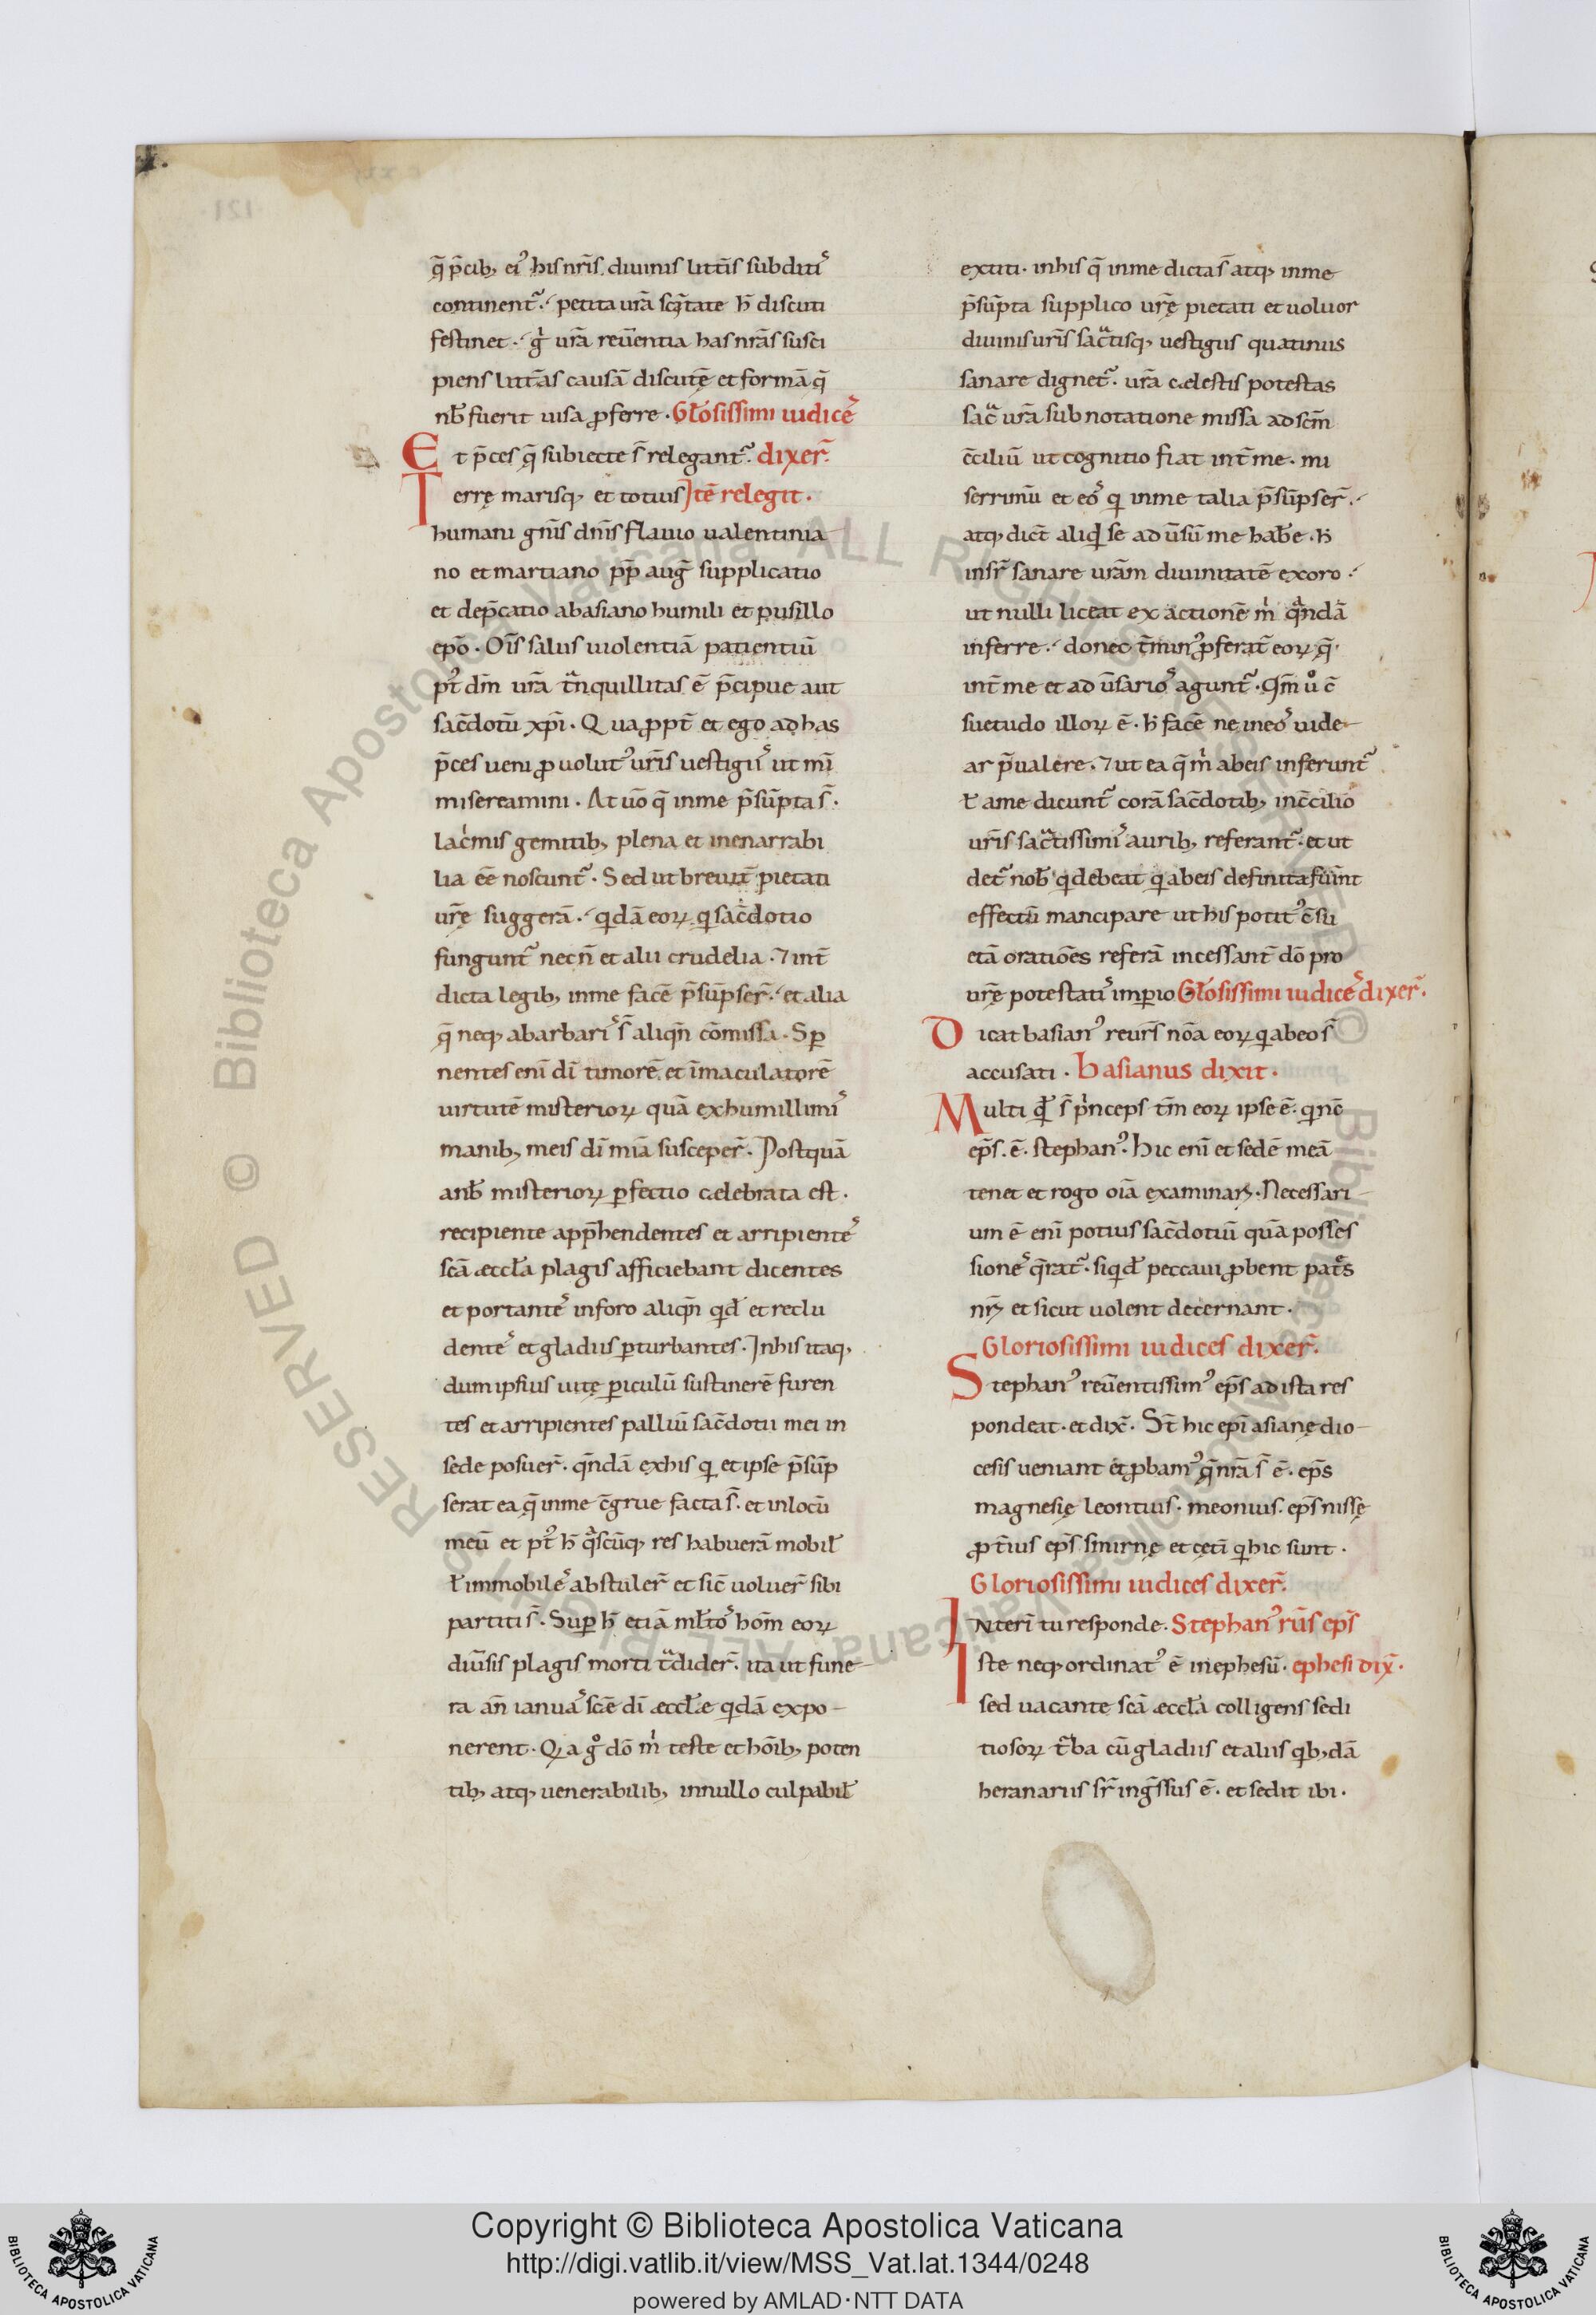 q̄ p̄cib, ei᾿ his nr̄is diuinis litt̄is subditis
continent᷑. petita ur̄a sc̄itate h̄ discuti
festinet. g̊ ur̄a reūentia has nr̄as susci
piens litt̄as causā discut̄e et formā q̄
nb̄ fuerit uisa ꝓferre. Gl̄osissimi iudicēs
Et p̄ces q̄ subiecte s̄ relegant᷑. dixer̄.
Terrę marisq, et totius Itē relegit.
humani gn̄is dn̄is flauio ualentinia
no et martiano pp̄ auḡ supplicatio
et dep̄catio abasiano humili et pusillo
ep̄o. Oīs salus uiolentiā patientiū
pꝰt dm̄ ur̄a tⁿquillitas ē p̄cipue aut
sac̄dotū xp̄i. Qua ꝓpt̄ et ego ad has
p̄ces ueni ꝓuolutꝰ ur̄is uestigiis ut mī
misereamini. At uō q̄ inme p̄sūpta s̄.
lac̍mis gemitib, plena et inenarrabi
lia eē noscunt᷑. Sed ut breuit̄ pietati
ur̄ę suggerā. qdā eoꝝ q sac̄dotio
fungunt᷑ necn̄ et alii crudelia. ⁊ int̄
dicta legib, inme fac̄e p̄sūpser̄. et alia
q̄ neq, abarbaris s̄ aliqn̄ cōmissa. Sꝑ
nentes enī dī timorē et īmaculatorē
uirtutē misterioꝝ quā exhumillimis
manib, meis dī mīa susceper̄. Postquā
anb̄ misterioꝝ ꝑfectio cęlebrata est.
recipiente app̄hendentes et arripientes
scā æccl̄a plagis afficiebant dicentes
et portantes inforo aliqn̄ qd̄ et reclu
dentes et gladiis ꝑturbantes. Inhis itaq,
dum ipsius uitę ꝑiculū sustinerē furen
tes et arripientes palliū sac̄dotii mei in
sede posuer̄. qn̄dā exhis q et ipse p̄sūp
serat ea q̄ inme c̄grue facta s̄. et inlocū
meū et pꝰt h̄ q̄scūq, res habuerā mobil̄
l̄ immobiles abstuler̄ et sic̄ uoluer̄ sibi
partiti s̄. Suꝑ h̄ etiā ml̄tos hom̄ eoꝝ
diūsis plagis morti tͣdider̄. ita ut fune
ra an̄ ianuas scē dī æccl̄æ qdā expo
nerent. Qꝛa g̊ dō m̍ teste et hōib, poten
tib, atq, uenerabilib, innullo culpabil̄
extiti. inhis q̄ inme dicta s̄ atq, inme
p̄sūpta supplico ur̄ę pietati et uoluor
diuinis ur̄is sac̄tisq, uestigiis quatinus
sanare dignet᷑. ur̄a cęlestis potestas
sac̄ ur̄a sub notatione missa ad scm̄
c̄ciliū ut cognitio fiat int̄ me. mi
serrimū et eos q inme talia p̄sūpser̄.
atq, dict̄ aliqd̄ se ad ūsū me hab̄e. h̄
insr̄ sanare ur̄am diuinitatē exoro.
ut nulli liceat ex actionē m̍ q̄ndā
inferre. donec t̄minꝰ ꝓferat̄ eoꝝ q̄
int̄ me et ad ūsarios agunt᷑. Qm̄ ů c̄
suetudo illoꝝ ē. h̄ fac̄e ne ineos uide
ar p̄ualere. ⁊ ut ea q̄ m̍ abeis inferunt᷑
l̄ ame dicunt᷑ corā sac̄dotib, inc̄cilio
ur̄is sac̄tissimis aurib, referant᷑. et ut
det᷑ nob̄ qdebeat q abeis definita fūint
effectū mancipare ut his potitꝰ c̄su
etā oratiōes referā incessant̄ dō pro
ur̄ę potestatis imꝑio Gl̄osissimi iudices dixer̄.
Dicat basianꝰ reur̄s nōa eoꝝ q abeo s̄
accusati. Basianus dixit.
Multi qd̄ s̄ p̍nceps tm̄ eoꝝ ipse ē. q nc̄
ep̄s. ē. stephanꝰ. Hic enī et sedē meā
tenet et rogo oīa examinari. Necessari
um ē enī potius sac̄dotiū quā posses
siones q̄rat᷑. siqd̄ peccaui ꝓbent patr̄s
nr̄i et sicut uolent decernant.
Gloriosissimi iudices dixer̄.
Stephanꝰ reūentissimꝰ ep̄s ad ista res
pondeat. et dix̄. St̄ hic ep̄i asianę dio
cesis ueniant et ꝓbamꝰ q̄ nr̄a s̄ ē. ep̄s
magnesię leontius. meonius. ep̄s nissę
ꝓt̄ius ep̄s smirnę et cęt̄i q hic sunt.
Gloriosissimi iudices dixer̄.
Interī tu responde. Stephanꝰ rūs ep̄s
Iste neq, ordinatꝰ ē inephesū. ephesi dix̄.
sed uacante scā æccl̄a colligens sedi
tiosoꝝ t̄ba cū gladiis et aliis qb,dā
heranariis sr̄ inḡssus ē. et sedit ibi.
Copyright © Biblioteca Apostolica Vaticana
http://digi.vatlib.it/view/MSS_Vat.lat.1344/0248
powered by AMLAD·NTT DATA
BIBLIOTECA APOSTOLICA VATICANA
BIBLIOTECA APOSTOLICA VATICANA